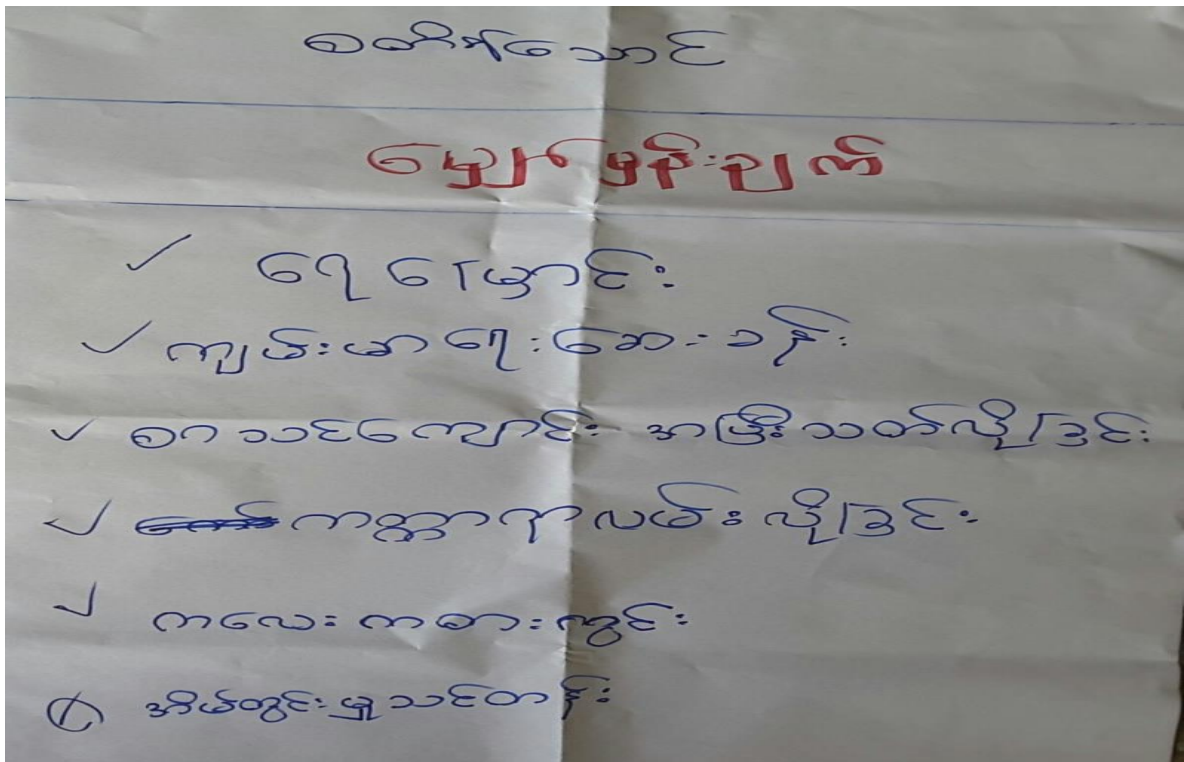 စတိတ်သောင်
မျှော်မှန်းချက်
✓ ရေမြောင်း
✓ ကျမ်းမာရေးဆေးခန်း
✓ စာသင်ကျောင်း အပြီးသတ်လိုခြင်း
✓ ကတ္တာရာလမ်း လိုခြင်း
✓ ကလေးကစားကွင်း
အိမ်တွင်းမှုသင်တန်း